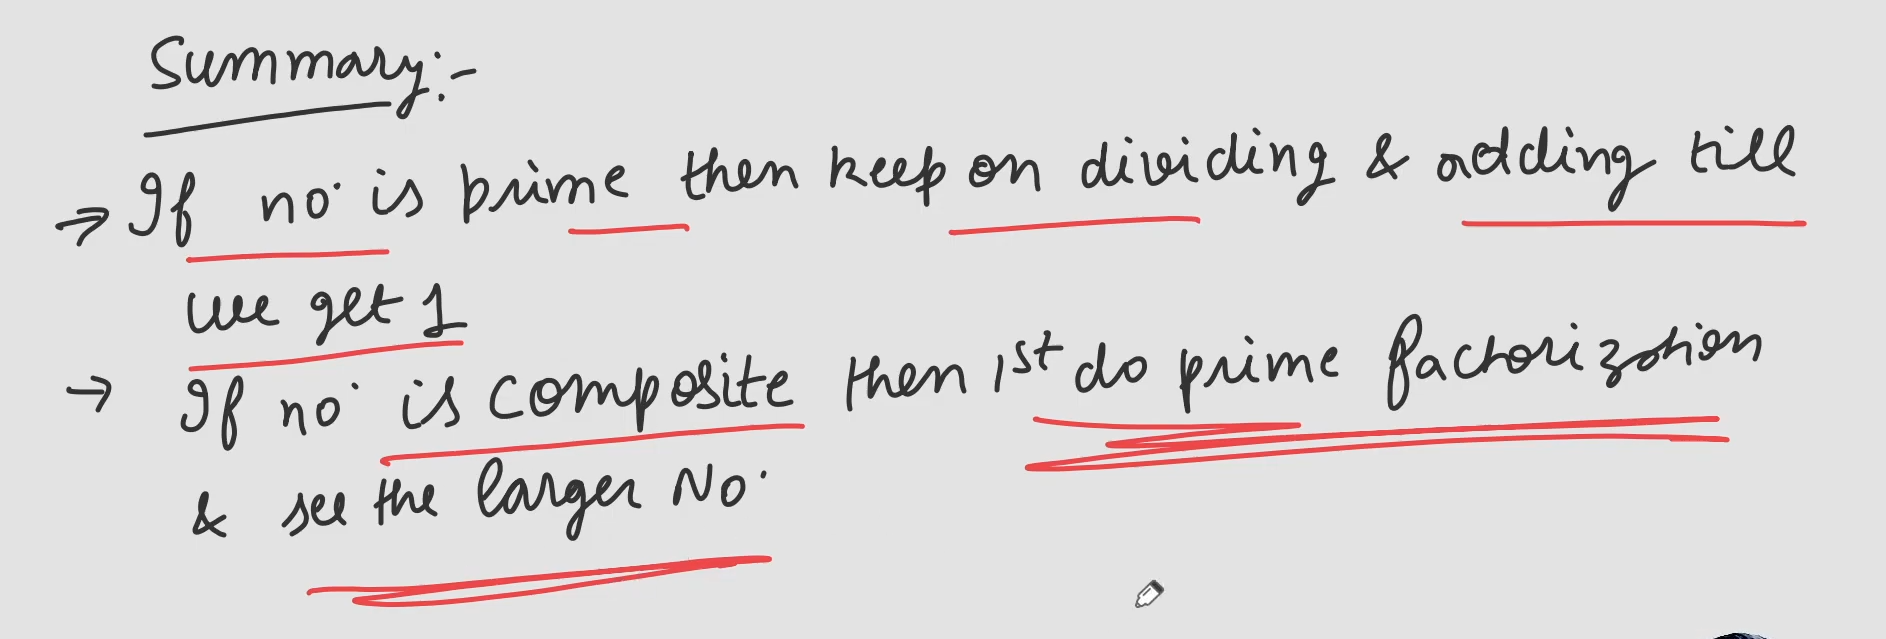 Summary:-
→ If no. is prime then keep on dividing & adding till
we get 1
→ If no. is composite then 1st do prime factorization
& see the larger No.